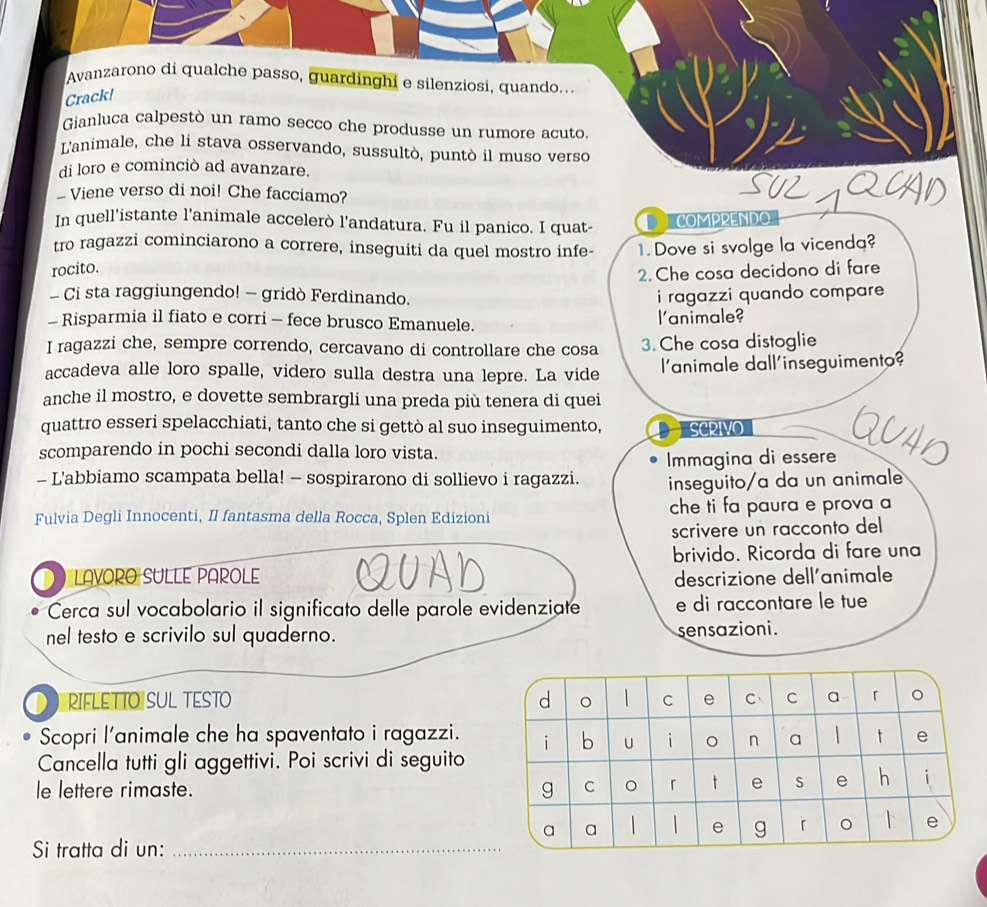 Avanzarono di qualche passo, guardinghi e silenziosi, quando...
Crack!
Gianluca calpestò un ramo secco che produsse un rumore acuto.
L'animale, che li stava osservando, sussultò, puntò il muso verso
di loro e cominciò ad avanzare.
– Viene verso di noi! Che facciamo?
In quell'istante l'animale accelerò l'andatura. Fu il panico. I quat-
tro ragazzi cominciarono a correre, inseguiti da quel mostro infe-
rocito.
– Ci sta raggiungendo! – gridò Ferdinando.
– Risparmia il fiato e corri – fece brusco Emanuele.
I ragazzi che, sempre correndo, cercavano di controllare che cosa
accadeva alle loro spalle, videro sulla destra una lepre. La vide
anche il mostro, e dovette sembrargli una preda più tenera di quei
quattro esseri spelacchiati, tanto che si gettò al suo inseguimento,
scomparendo in pochi secondi dalla loro vista.
– L'abbiamo scampata bella! – sospirarono di sollievo i ragazzi.
Fulvia Degli Innocenti, Il fantasma della Rocca, Splen Edizioni
SUL QUAD
COMPRENDO
1. Dove si svolge la vicenda?
2. Che cosa decidono di fare
i ragazzi quando compare
l'animale?
3. Che cosa distoglie
l'animale dall'inseguimento?
SCRIVO
QUAD
• Immagina di essere
inseguito/a da un animale
che ti fa paura e prova a
scrivere un racconto del
brivido. Ricorda di fare una
descrizione dell'animale
e di raccontare le tue
sensazioni.
LAVORO SULLE PAROLE
QUAD
• Cerca sul vocabolario il significato delle parole evidenziate
nel testo e scrivilo sul quaderno.
RIFLETTO SUL TESTO
• Scopri l'animale che ha spaventato i ragazzi.
Cancella tutti gli aggettivi. Poi scrivi di seguito
le lettere rimaste.
Si tratta di un:
d o l c e c c a r o
i b u i o n a l t e
g c o r t e s e h i
a a l l e g r o l e